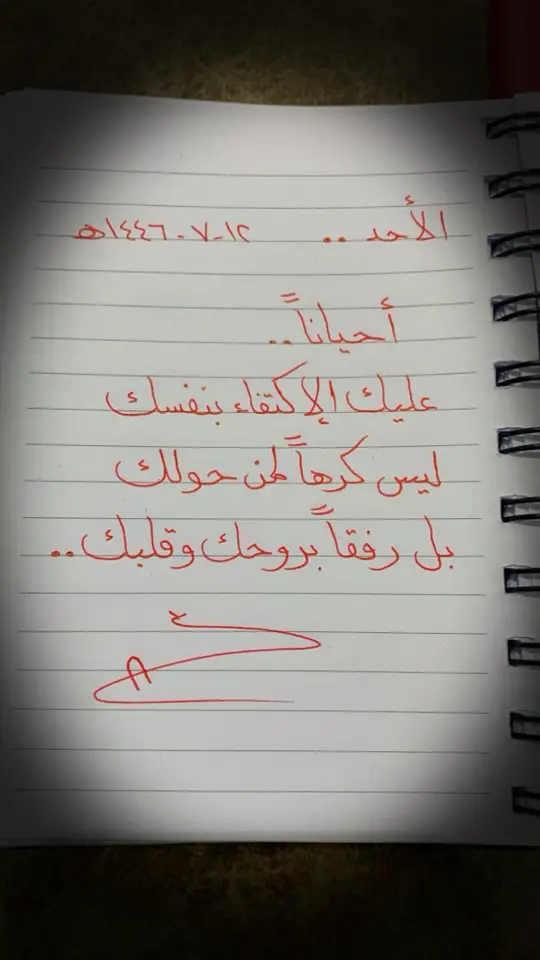 الأحد .. ١٢-٧-١٤٤٦هـ
أحياناً ..
عليك الإكتفاء بنفسك
ليس كرهاً لمن حولك
بل رفقاً بروحك وقلبك ..